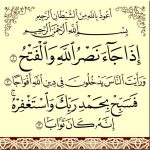 أعوذ بالله من الشيطان الرجيم
بسم الله الرحمن الرحيم
إِذَا جَاءَ نَصْرُ اللَّهِ وَالْفَتْحُ
وَرَأَيْتَ النَّاسَ يَدْخُلُونَ فِي دِينِ اللَّهِ أَفْوَاجًا
فَسَبِّحْ بِحَمْدِ رَبِّكَ وَاسْتَغْفِرْهُ
إِنَّهُ كَانَ تَوَّابًا